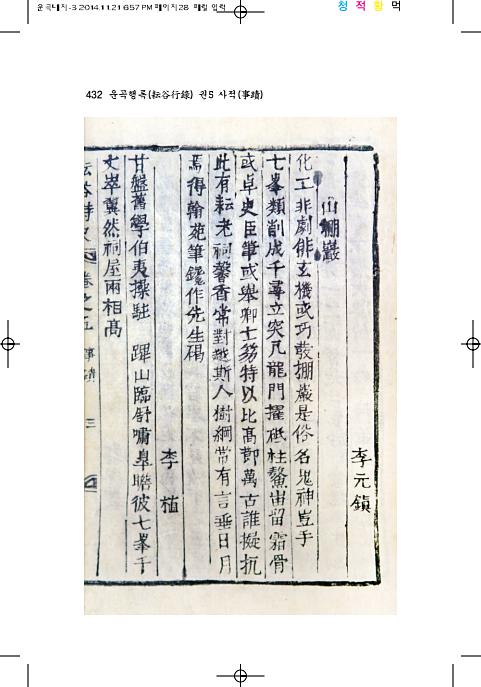 운곡내지-3 2014.11.21 6:57 PM 페이지28 매킬 입력
청 적 황 먹
432 운곡행록(耘谷行錄) 권5 사적(事蹟)
李元鎭
山棚巖
化工非劇俳玄機或巧發棚巖是俗名鬼神豈手
七峯類削成千尋立突兀龍門擢砥柱鰲宙留霜骨
或卓史臣筆或舉卿士笏特以比高節萬古誰擬抗
此有耘老祠馨香常對越斯人樹綱常有言垂日月
焉得翰苑筆鑱作先生碣
李植
甘盤舊學伯夷操駐蹕山臨舒嘯皐瞻彼七峯千
丈崒冀然祠屋兩相高
耘谷詩史 卷之五 事蹟 三